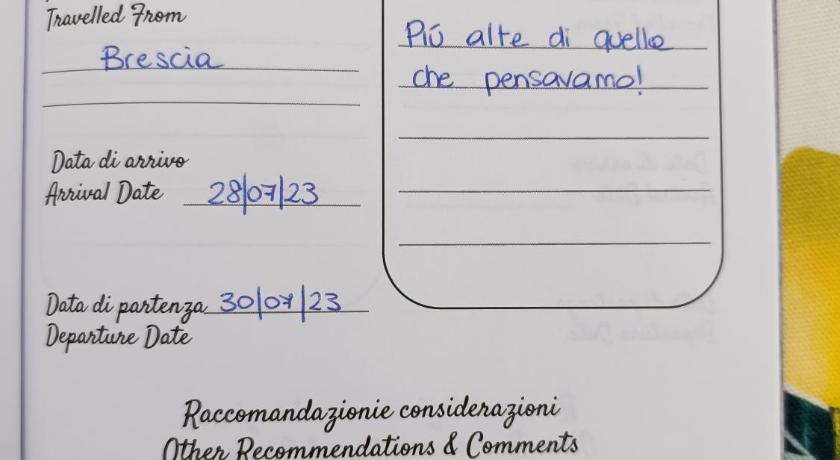 Travelled From
Brescia
Data di arrivo
Arrival Date 28/07/23
Data di partenza 30/07/23
Departure Date
Più alte di quello
che pensavamo!
Raccomandazionie considerazioni
Other Recommendations & Comments